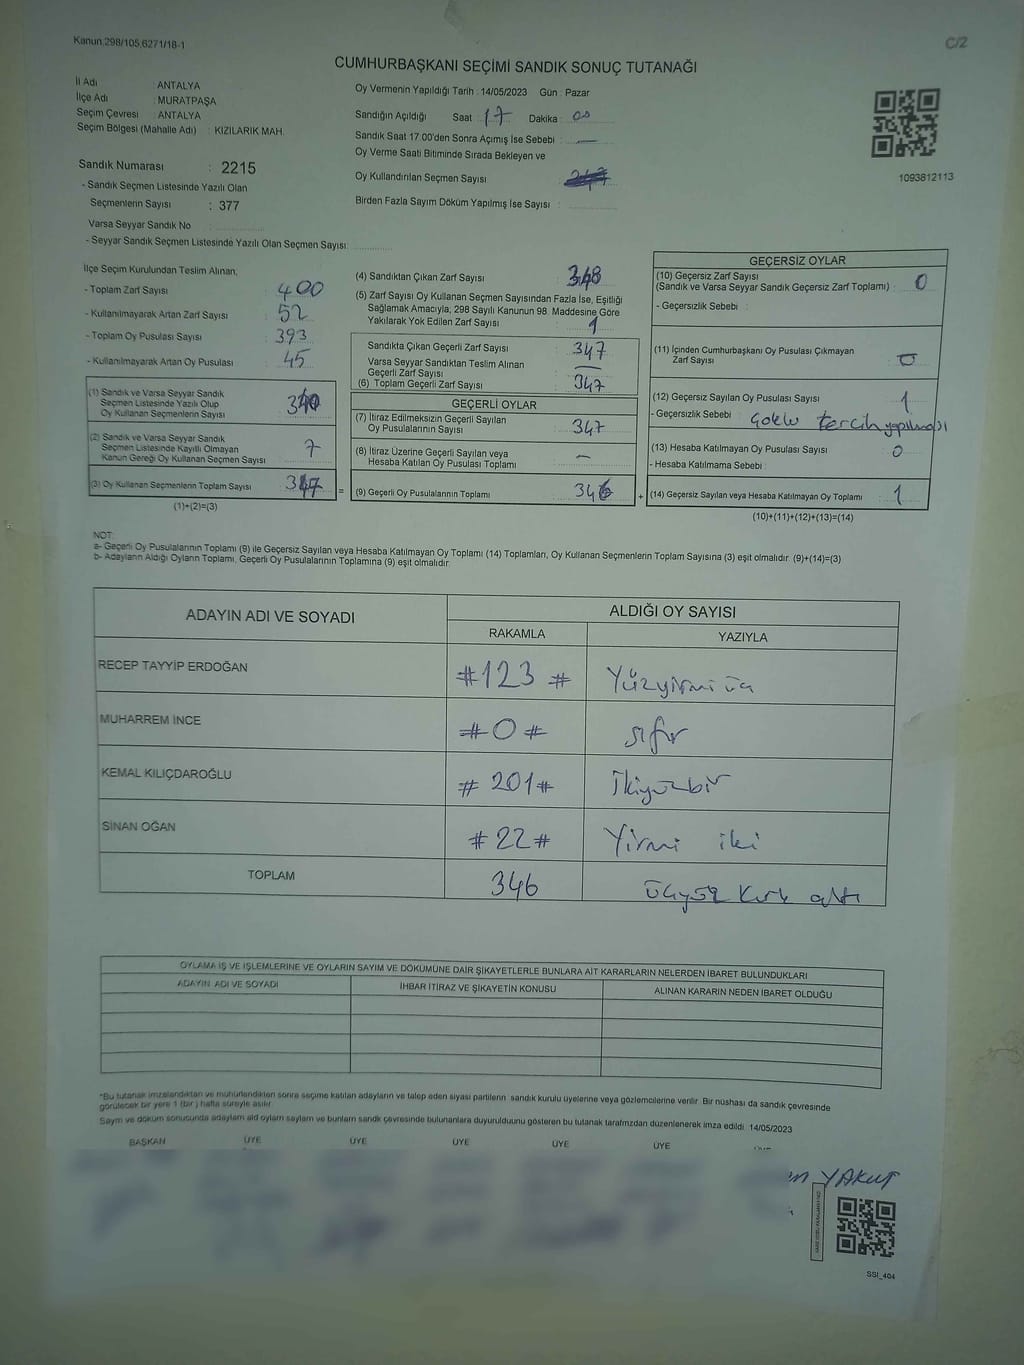 Kanun,298/105,6271/18-1
C/2
CUMHURBAŞKANI SEÇİMİ SANDIK SONUÇ TUTANAĞI
İl Adı ANTALYA
İlçe Adı : MURATPAŞA
Seçim Çevresi : ANTALYA
Seçim Bölgesi (Mahalle Adı) : KIZILARIK MAH.
Sandık Numarası : 2215
- Sandık Seçmen Listesinde Yazılı Olan
Seçmenlerin Sayısı : 377
Varsa Seyyar Sandık No :
- Seyyar Sandık Seçmen Listesinde Yazılı Olan Seçmen Sayısı:
Oy Vermenin Yapıldığı Tarih : 14/05/2023 Gün : Pazar
Sandığın Açıldığı Saat : 17 Dakika : 00
Sandık Saat 17.00'den Sonra Açımış İse Sebebi : —
Oy Verme Saati Bitiminde Sırada Bekleyen ve
Oy Kullandırılan Seçmen Sayısı :
Birden Fazla Sayım Döküm Yapılmış İse Sayısı :
1093812113
İlçe Seçim Kurulundan Teslim Alınan;
- Toplam Zarf Sayısı : 400
- Kullanılmayarak Artan Zarf Sayısı : 52
- Toplam Oy Pusulası Sayısı : 393
- Kullanılmayarak Artan Oy Pusulası : 45
(1) Sandık ve Varsa Seyyar Sandık
Seçmen Listesinde Yazılı Olup
Oy Kullanan Seçmenlerin Sayısı : 340
(2) Sandık ve Varsa Seyyar Sandık
Seçmen Listesinde Kayıtlı Olmayan
Kanun Gereği Oy Kullanan Seçmen Sayısı : 7
(3) Oy Kullanan Seçmenlerin Toplam Sayısı : 347
(1)+(2)=(3)
(4) Sandıktan Çıkan Zarf Sayısı : 348
(5) Zarf Sayısı Oy Kullanan Seçmen Sayısından Fazla İse, Eşitliği
Sağlamak Amacıyla, 298 Sayılı Kanunun 98. Maddesine Göre
Yakılarak Yok Edilen Zarf Sayısı : 1
Sandıkta Çıkan Geçerli Zarf Sayısı : 347
Varsa Seyyar Sandıktan Teslim Alınan
Geçerli Zarf Sayısı : —
(6) Toplam Geçerli Zarf Sayısı : 347
GEÇERLİ OYLAR
(7) İtiraz Edilmeksizin Geçerli Sayılan
Oy Pusulalarının Sayısı : 347
(8) İtiraz Üzerine Geçerli Sayılan veya
Hesaba Katılan Oy Pusulası Toplamı : —
= (9) Geçerli Oy Pusulalarının Toplamı : 346
GEÇERSİZ OYLAR
(10) Geçersiz Zarf Sayısı
(Sandık ve Varsa Seyyar Sandık Geçersiz Zarf Toplamı) : 0
- Geçersizlik Sebebi :
(11) İçinden Cumhurbaşkanı Oy Pusulası Çıkmayan
Zarf Sayısı : 0
(12) Geçersiz Sayılan Oy Pusulası Sayısı : 1
- Geçersizlik Sebebi : Çoklu tercih yapılması
(13) Hesaba Katılmayan Oy Pusulası Sayısı : 0
- Hesaba Katılmama Sebebi :
+ (14) Geçersiz Sayılan veya Hesaba Katılmayan Oy Toplamı : 1
(10)+(11)+(12)+(13)=(14)
NOT:
a- Geçerli Oy Pusulalarının Toplamı (9) ile Geçersiz Sayılan veya Hesaba Katılmayan Oy Toplamı (14) Toplamları, Oy Kullanan Seçmenlerin Toplam Sayısına (3) eşit olmalıdır. (9)+(14)=(3)
b- Adayların Aldığı Oyların Toplamı, Geçerli Oy Pusulalarının Toplamına (9) eşit olmalıdır.
ADAYIN ADI VE SOYADI ALDIĞI OY SAYISI
RAKAMLA YAZIYLA
RECEP TAYYİP ERDOĞAN #123# Yüzyirmi üç
MUHARREM İNCE #0# sıfır
KEMAL KILIÇDAROĞLU #201# İkiyüzbir
SİNAN OĞAN #22# Yirmi iki
TOPLAM 346 üçyüz kırk altı
OYLAMA İŞ VE İŞLEMLERİNE VE OYLARIN SAYIM VE DÖKÜMÜNE DAİR ŞİKAYETLERLE BUNLARA AİT KARARLARIN NELERDEN İBARET BULUNDUKLARI
ADAYIN ADI VE SOYADI İHBAR İTİRAZ VE ŞİKAYETİN KONUSU ALINAN KARARIN NEDEN İBARET OLDUĞU
*Bu tutanak imzalandıktan ve mühürlendikten sonra seçime katılan adayların ve talep eden siyasi partilerin sandık kurulu üyelerine veya gözlemcilerine verilir. Bir nüshası da sandık çevresinde
görülecek bir yere 1 (bir) hafta süreyle asılır.
Sayım ve döküm sonucunda adayların ald oyların sayların ve bunların sandk çevresinde bulunanlara duyurulduunu gösteren bu tutanak tarafımzdan düzenlenerek imza edildi. 14/05/2023
BAŞKAN ÜYE ÜYE ÜYE ÜYE ÜYE
YAKUT
SSI_404